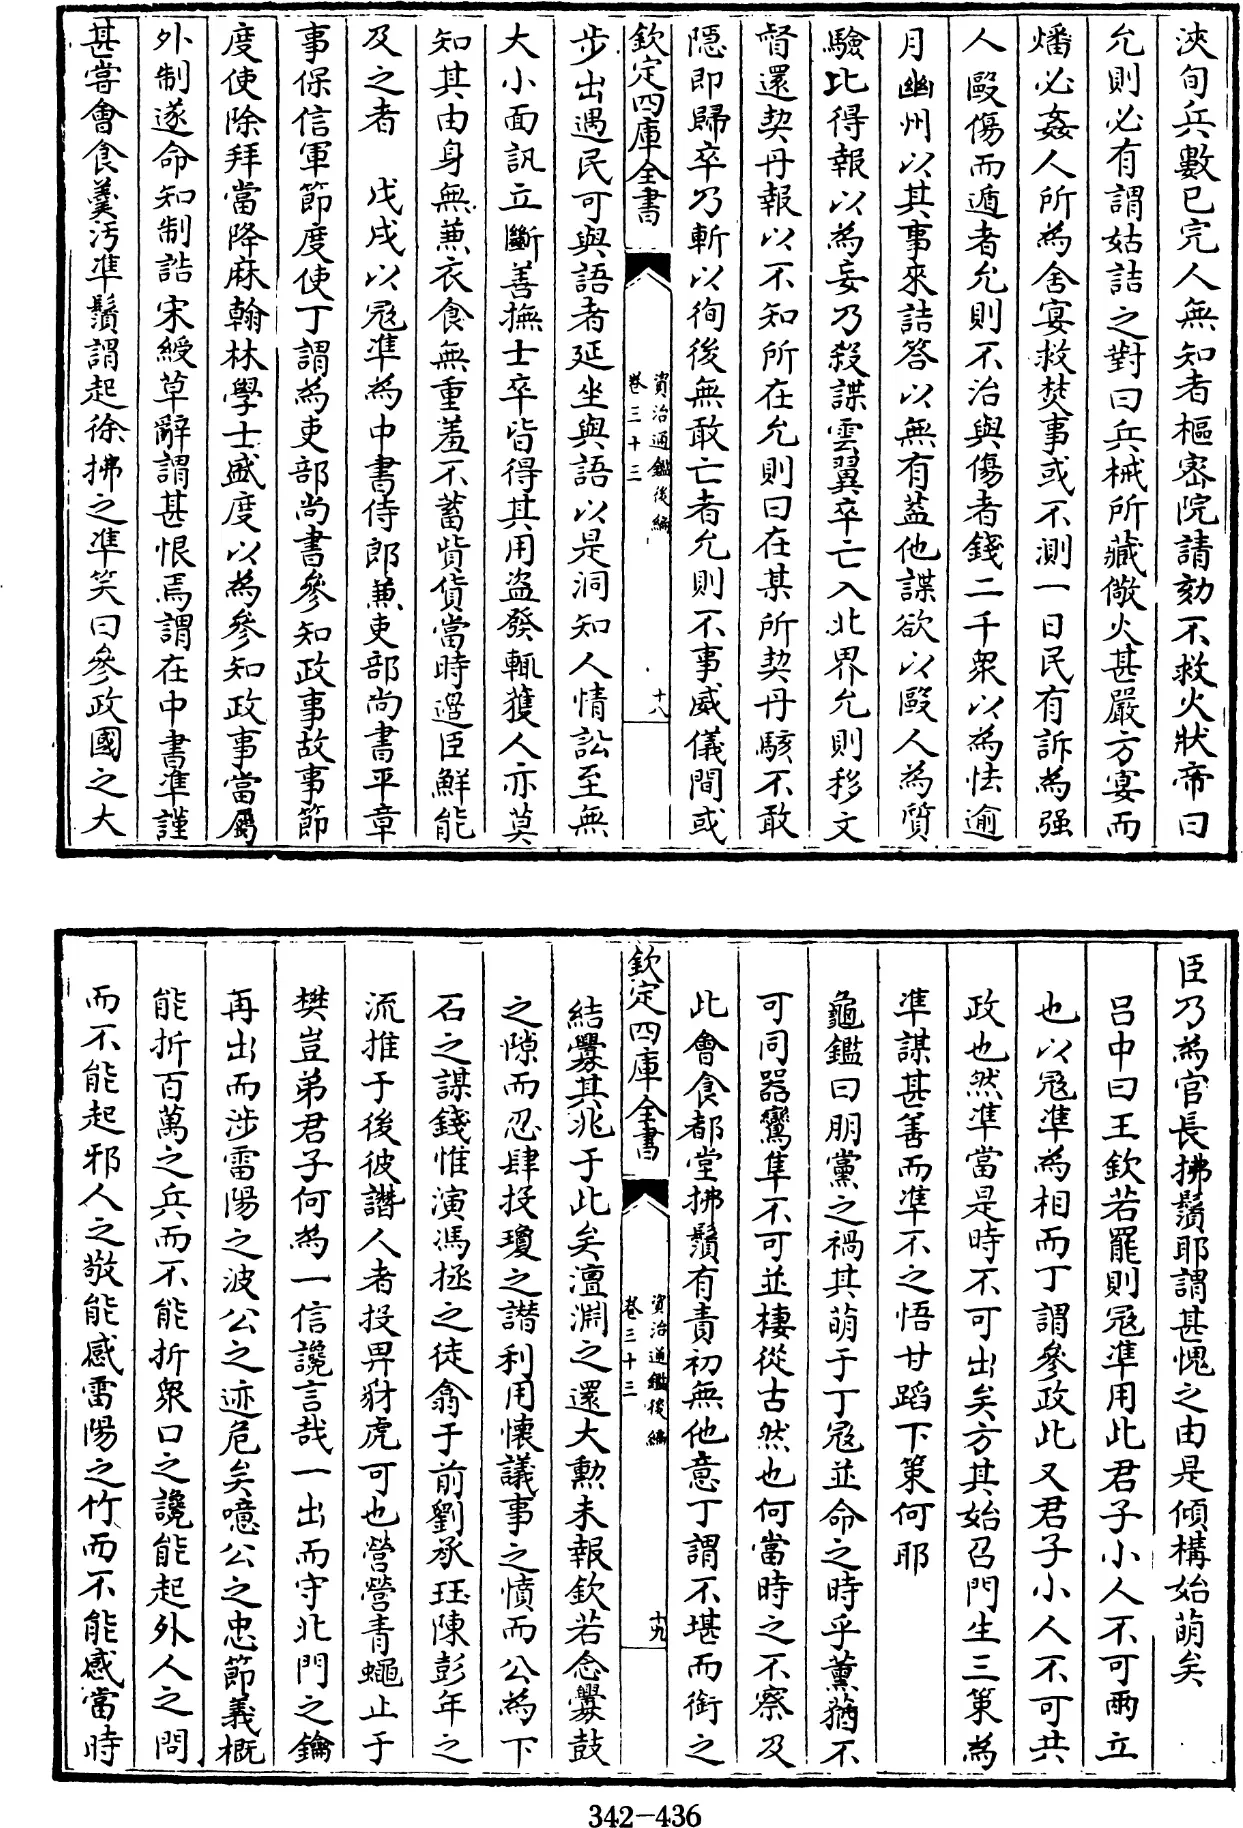 浹旬兵數已完人無知者樞密院請劾不救火狀帝曰
允則必有謂姑詰之對曰兵械所藏儆火甚嚴方宴而
燔必姦人所為舍宴救焚事或不測一日民有訴為强
人毆傷而遁者允則不治與傷者錢二千衆以為怯逾
月幽州以其事來詰答以無有葢他諜欲以毆人為質
驗比得報以為妄乃殺諜雲翼卒亡入北界允則移文
督還契丹報以不知所在允則曰在某所契丹駭不敢
隱即歸卒乃斬以徇後無敢亡者允則不事威儀間或
欽定四庫全書
資治通鑑後編
卷三十三
十八
步出遇民可與語者延坐與語以是洞知人情訟至無
大小面訊立斷善撫士卒皆得其用盜發輒獲人亦莫
知其由身無兼衣食無重羞不蓄貲貨當時邊臣鮮能
及之者 戊戌以寇準為中書侍郎兼吏部尚書平章
事保信軍節度使丁謂為吏部尚書參知政事故事節
度使除拜當降麻翰林學士盛度以為參知政事當屬
外制遂命知制誥宋綬草辭謂甚恨焉謂在中書準謹
甚嘗會食羹汚準鬚謂起徐拂之準笑曰參政國之大
臣乃為官長拂鬚耶謂甚愧之由是傾構始萌矣
呂中曰王欽若罷則寇準用此君子小人不可兩立
也以寇準為相而丁謂參政此又君子小人不可共
政也然準當是時不可出矣方其始召門生三策為
準謀甚善而準不之悟甘蹈下策何耶
龜鑑曰朋黨之禍其萌于丁寇並命之時乎薰蕕不
可同器鸞隼不可並棲從古然也何當時之不察及
此會食都堂拂鬚有責初無他意丁謂不堪而銜之
欽定四庫全書
資治通鑑後編
卷三十三
十九
結釁其兆于此矣澶淵之還大勳未報欽若念釁鼓
之隙而忍肆投瓊之譖利用懷議事之憤而公為下
石之謀錢惟演馮拯之徒翕于前劉承珪陳彭年之
流推于後彼譖人者投畀豺虎可也營營青蠅止于
樊豈弟君子何為一信讒言哉一出而守北門之鑰
再出而涉雷陽之波公之迹危矣噫公之忠節義概
能折百萬之兵而不能折衆口之讒能起外人之問
而不能起邪人之敬能感雷陽之竹而不能感當時
342-436